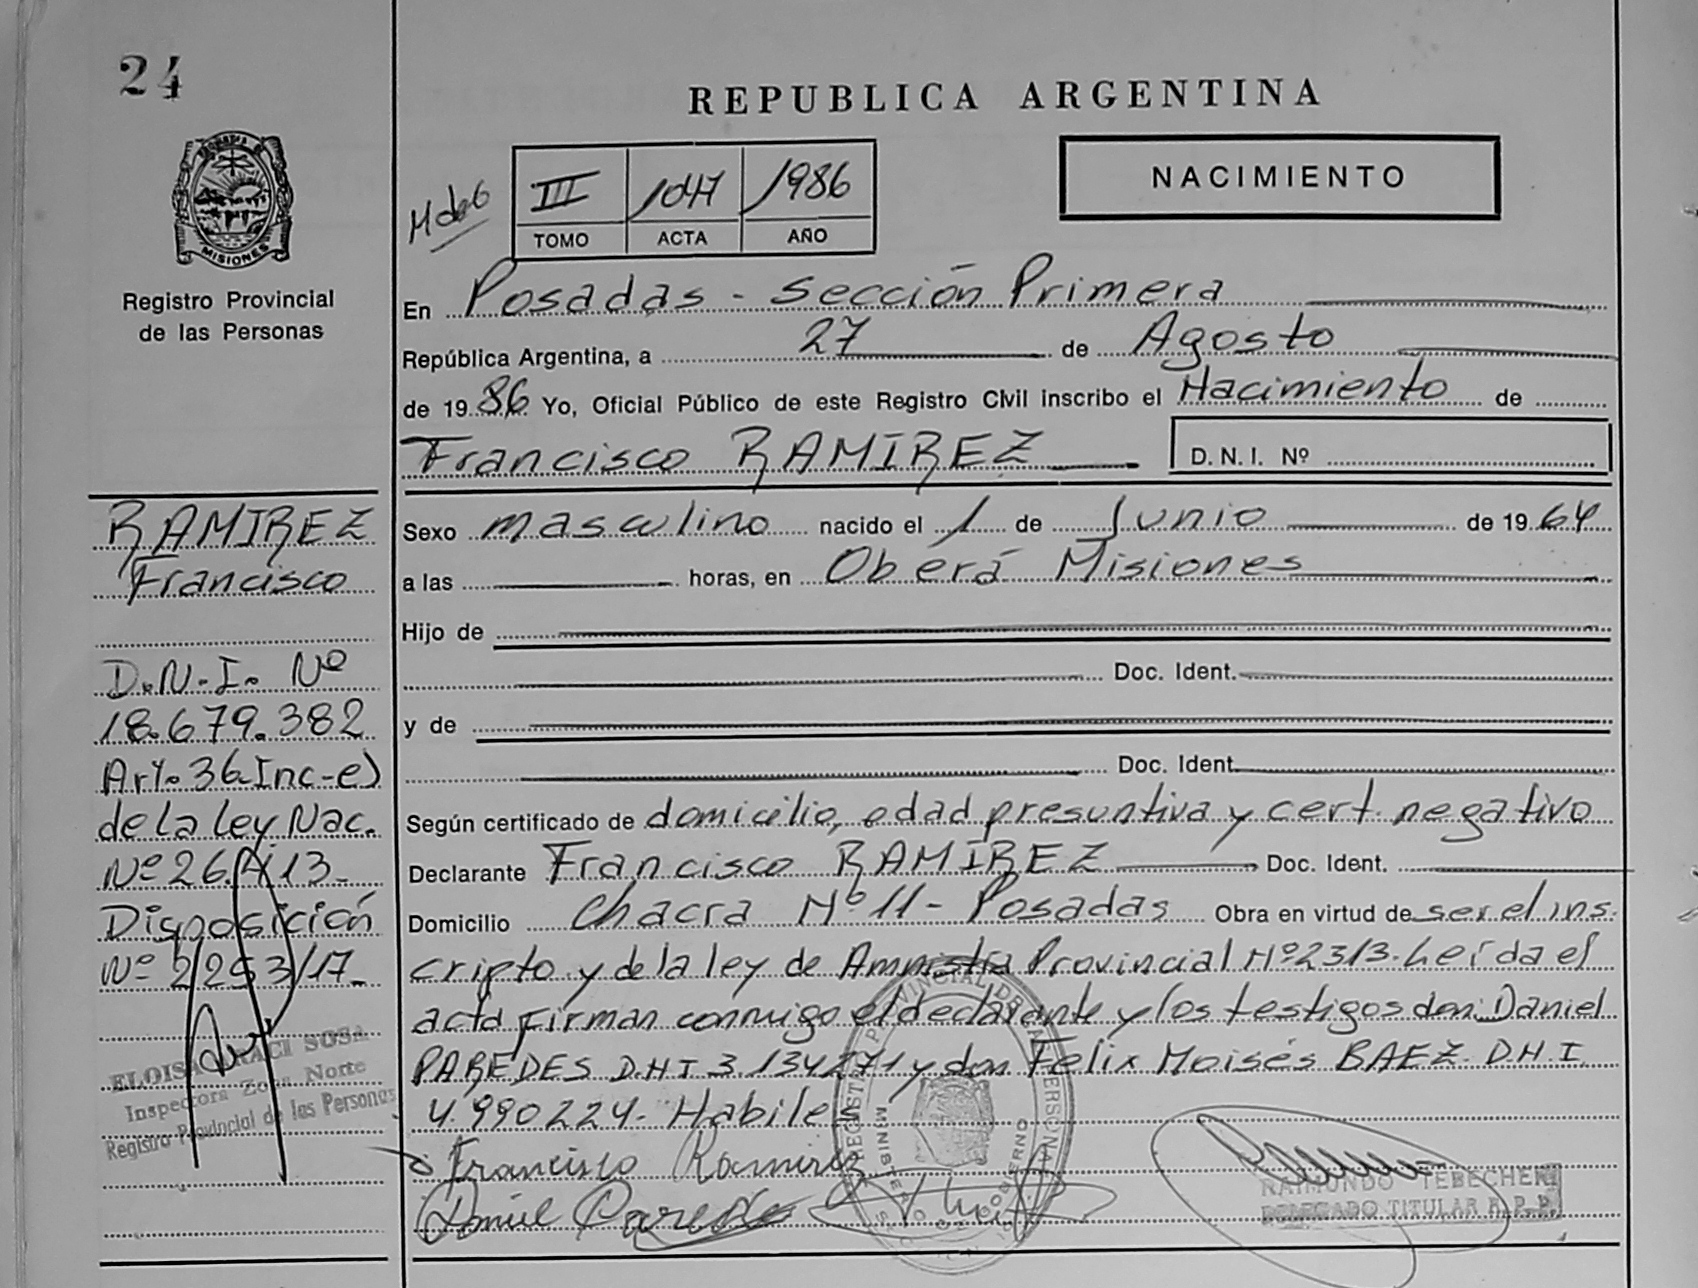 24
REPUBLICA ARGENTINA
MISIONES
Registro Provincial
de las Personas
III 1047 1986
TOMO ACTA AÑO
NACIMIENTO
En Posadas - Sección Primera
República Argentina, a 27 de Agosto
de 1986 Yo, Oficial Público de este Registro Civil inscribo el Nacimiento de
Francisco RAMIREZ D. N. I. Nº
Sexo masculino nacido el 1 de Junio de 1964
a las horas, en Oberá Misiones
Hijo de
Doc. Ident.
y de
Doc. Ident.
Según certificado de domicilio, edad presuntiva y cert. negativo
Declarante Francisco RAMIREZ Doc. Ident.
Domicilio Chacra Nº 11 - Posadas Obra en virtud de ser el ins
cripto y de la ley de Amnistia Provincial Nº 2313. Leída el
acta firman conmigo el declarante y los testigos don: Daniel
PAREDES D.N.I 3.134271 y don Felix Moisés BAEZ D.N.I
4.990224- Habiles
Francisco Ramirez
Daniel Paredes
RAIMUNDO TEBECHERI
DELEGADO TITULAR R.P.P.
RAMIREZ
Francisco
D.N.I. Nº
18.679.382
Art. 36 Inc-e)
de la ley Nac.
Nº 26.413-
Disposición
Nº 2253/17-
Inspectora Zona Norte
Registro Provincial de las Personas